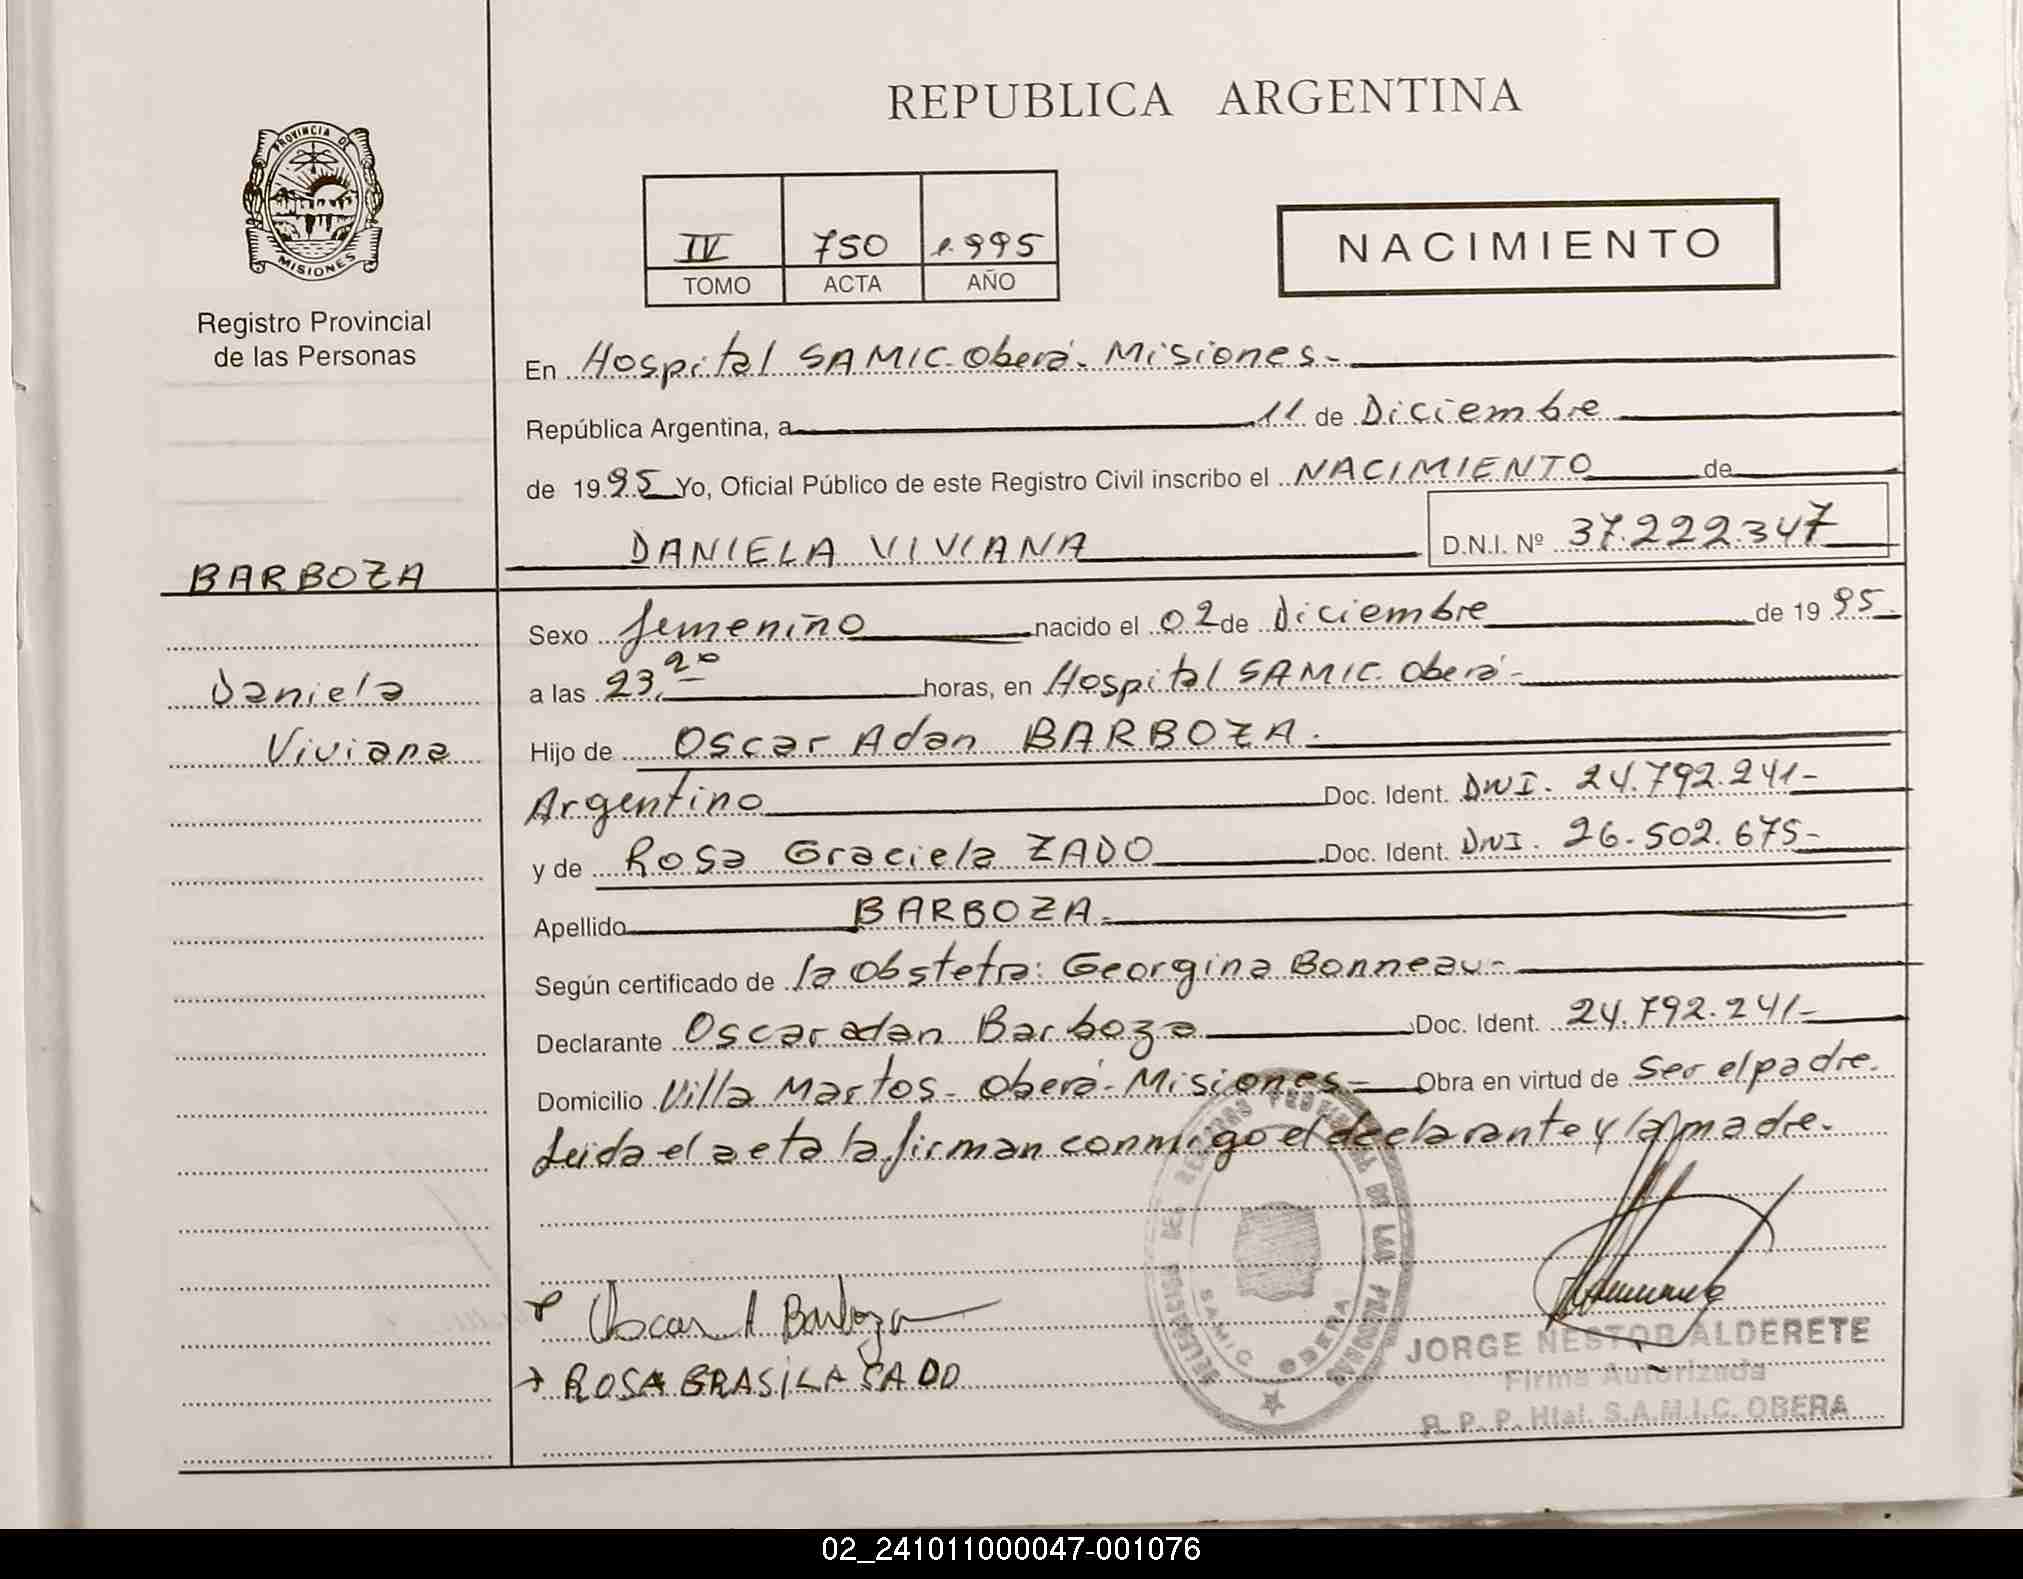 REPUBLICA ARGENTINA
PROVINCIA DE
MISIONES
Registro Provincial
de las Personas
IV 750 1.995
TOMO ACTA AÑO
NACIMIENTO
En Hospital SAMIC-Oberá-Misiones-
República Argentina, a 11 de Diciembre
de 1995 Yo, Oficial Público de este Registro Civil inscribo el NACIMIENTO de
DANIELA VIVIANA D.N.I. Nº 37.222.347
BARBOZA
Daniela
Viviana
Sexo femenino nacido el 02 de Diciembre de 1995.
a las 23,20 horas, en Hospital SAMIC. Oberá-
Hijo de Oscar Adan BARBOZA.
Argentino Doc. Ident. DNI. 24.792.241-
y de Rosa Graciela ZADO Doc. Ident. DNI. 26.502.675-
Apellido BARBOZA-
Según certificado de la obstetra: Georgina Bonneau-
Declarante Oscar adan Barboza Doc. Ident. 24.792.241-
Domicilio Villa Martos- Oberá-Misiones- Obra en virtud de ser el padre.
Leida el acta la firman conmigo el declarante y la madre.
Oscar A Barboza
ROSA GRASILA SADO
SAMIC OBERA
JORGE NESTOR ALDERETE
Firma Autorizada
R. P. P. Htal. S.A.M.I.C. OBERA
02_241011000047-001076